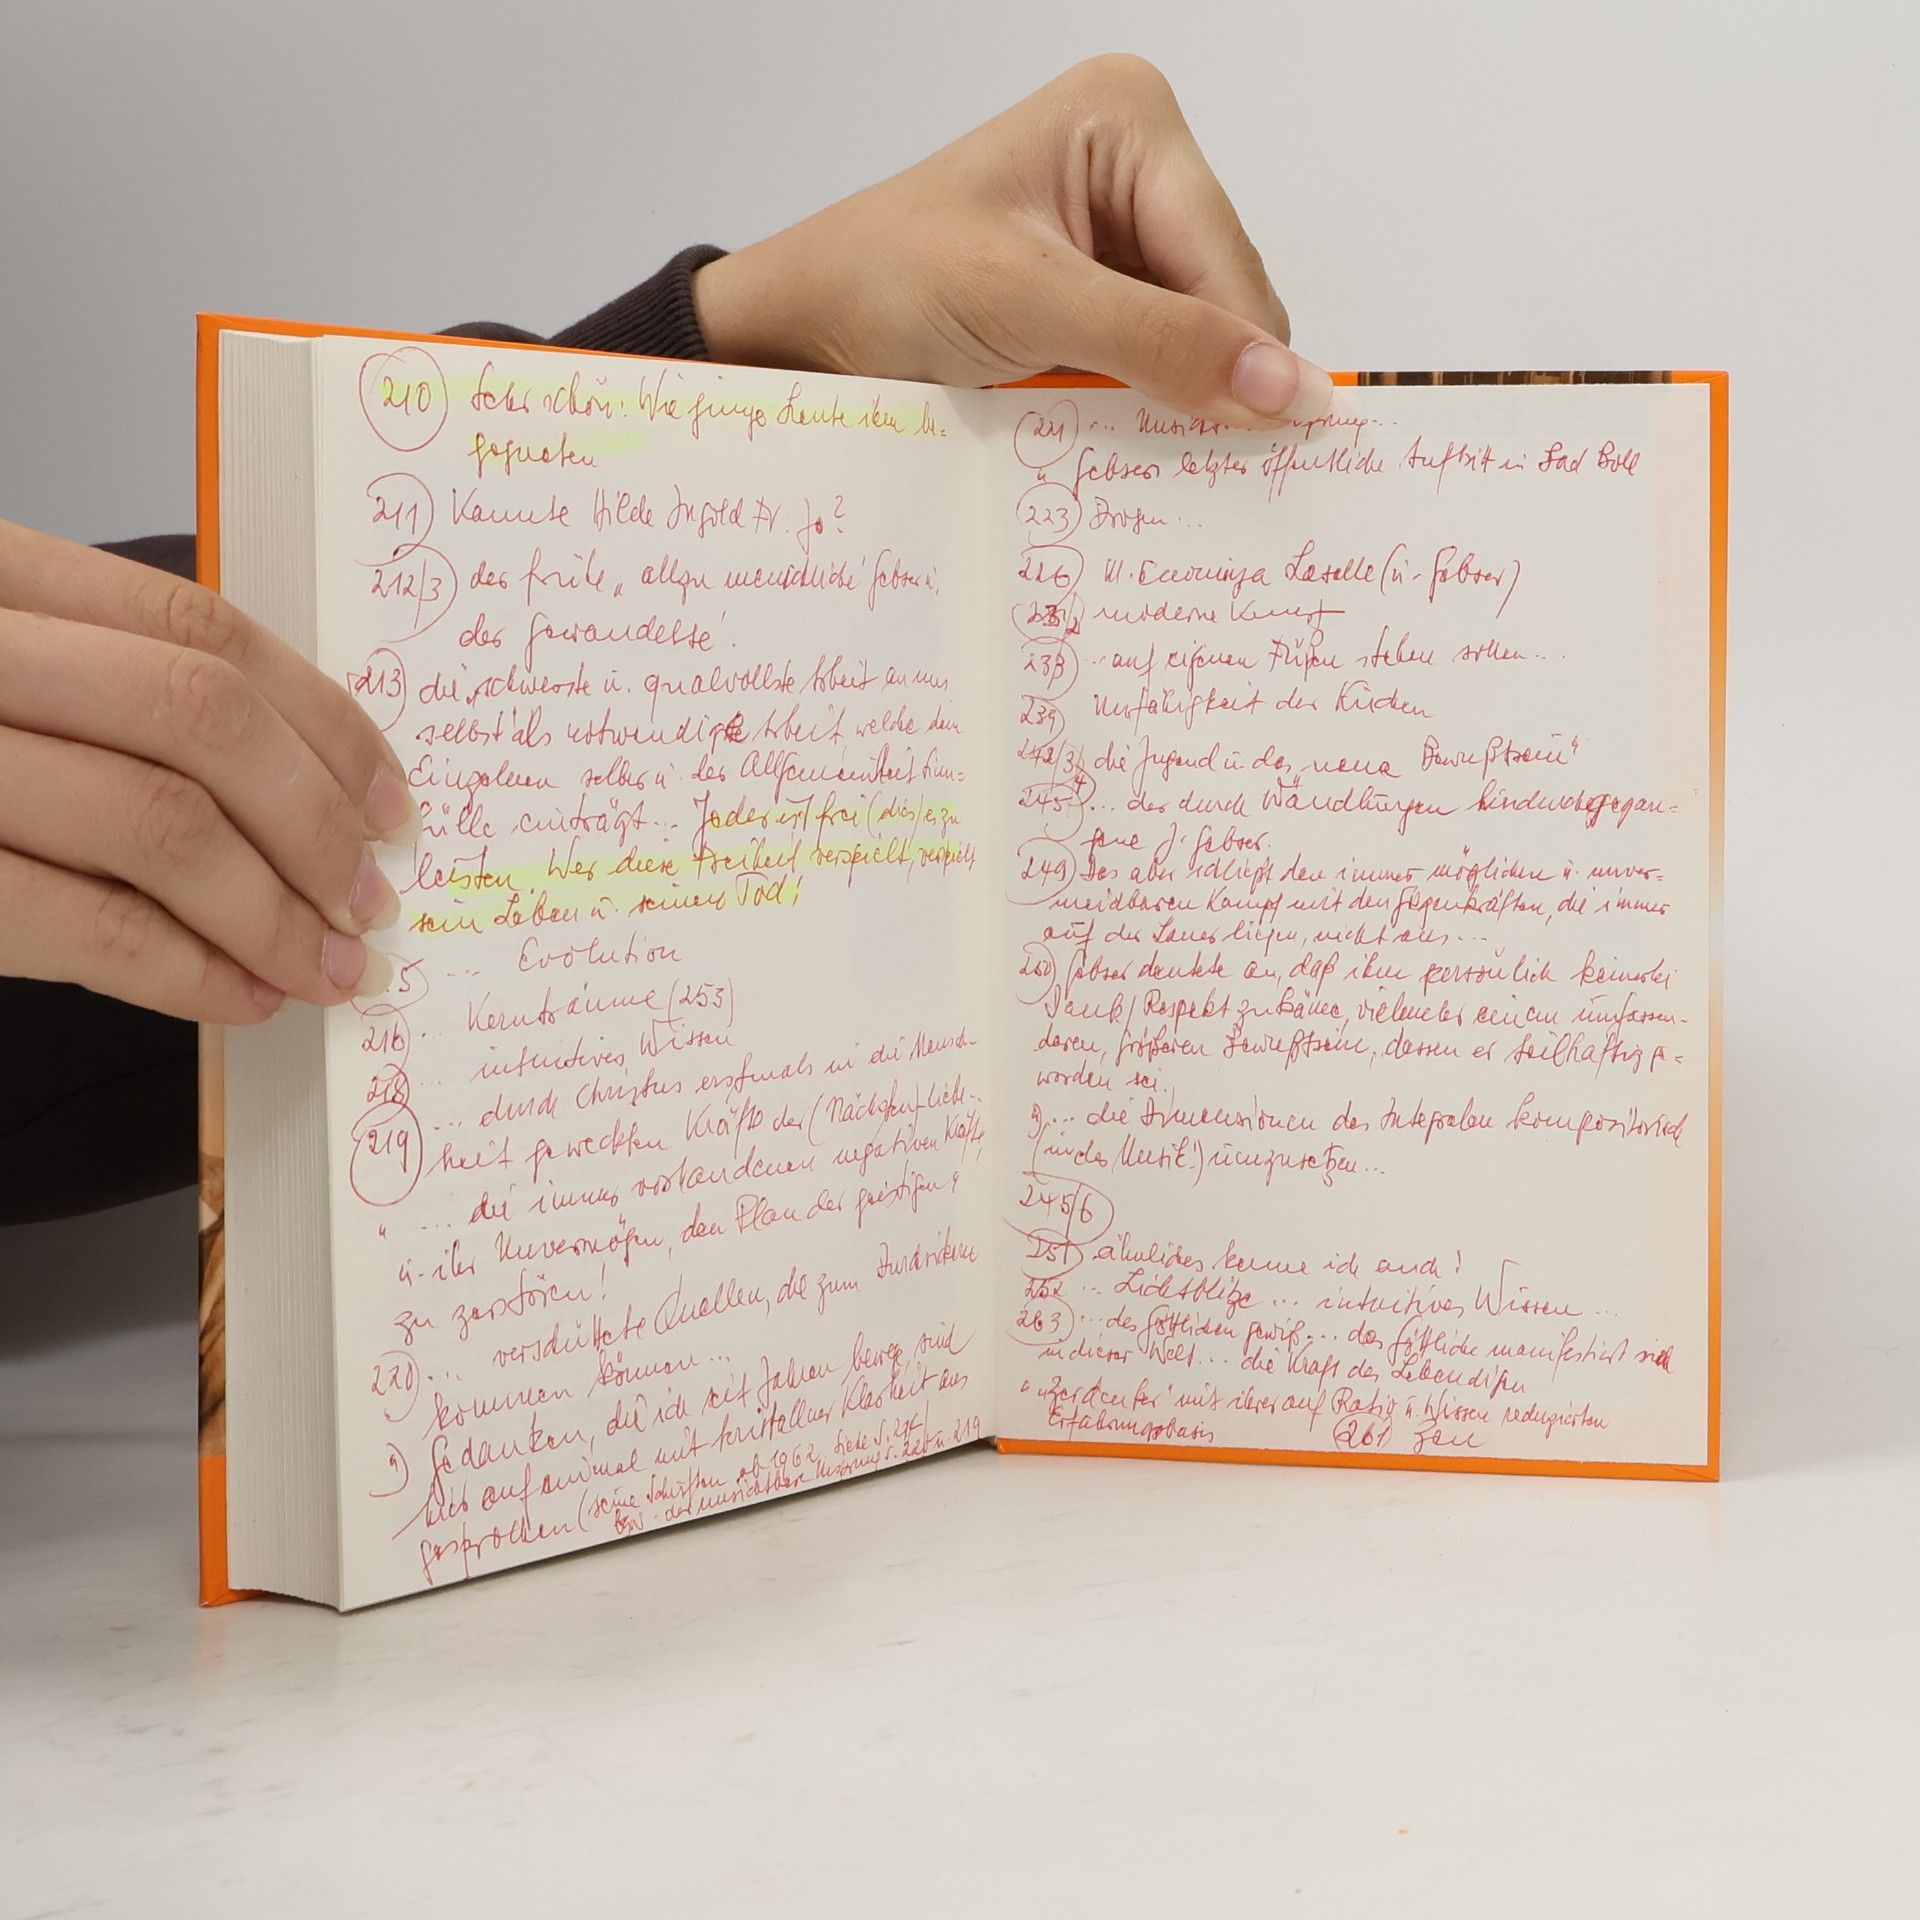 210 Sehr schön: Wie junge Leute ihm be=
gegneten
211 Kannte Hilde Ingold Fr. Jo?
212/3 der frühe „allzu menschliche' Gebser u.
der gewandelte'.
213 die „schwerste u. qualvollste Arbeit an uns
selbst als notwendigste Arbeit, welche dem
Einzelnen selber u. der Allgemeinheit Sinn=
fülle einträgt... Jeder ist frei (dies) es zu
leisten. Wer diese Freiheit verspielt, verspielt
sein Leben u. seinen Tod!
5 ... Evolution
216 ... Kernträume (253)
218 ... intuitives Wissen
219 ... durch Christus erstmals in die Mensch-
heit geweckten Kräfte der (Nächsten)-Liebe..
" ... die immer vorhandenen negativen Kräfte
u. ihr Unvermögen, den Plan der geistigen"
zu zerstören!
220 ... verschüttete Quellen, die zum Durchsickern
kommen können...
") Gedanken, die ich seit Jahren bewege, sind
hier auf einmal mit kristallner Klarheit aus
gesprochen (seine Schriften ab 1962, siehe S. 214/
bzw. der unsichtbare Ursprung S. 220 u. 219
221 ...
" Gebsers letzter öffentliche Auftritt in Bad Boll
223 Drogen...
226 Laselle (u. Gebser)
moderne Kunst
238 ..auf eigenen Füßen stehen sollen...
239 Unfähigkeit der Kirchen
242/3/4 die Jugend u. das neue Bewußtsein"
245 ... der durch Wandlungen hindurchgegan=
gene J. Gebser.
249 Das aber schließt den immer möglichen u. unver=
meidbaren Kampf mit den Gegenkräften, die immer
auf der Lauer liegen, nicht aus...
250 Gebser deutete an, daß ihm persönlich keinerlei
Dank/Respekt zukäme, vielmehr einem umfassen-
deren, größeren Bewußtsein, dessen er teilhaftig ge=
worden sei.,
") ... die Dimensionen des Integralen kompositorisch
(in der Musik!) umzusetzen...
245/6
251 ähnliches kenne ich auch!
252 ... Lichtblitze ... intuitives Wissen ...
263 ... des Göttlichen gewiß... das Göttliche manifestiert sich
in dieser Welt... die Kraft des Lebendigen
" „Zerdenker" mit ihrer auf Ratio u. Wissen reduzierten
Erfahrungsbasis (261) Zen